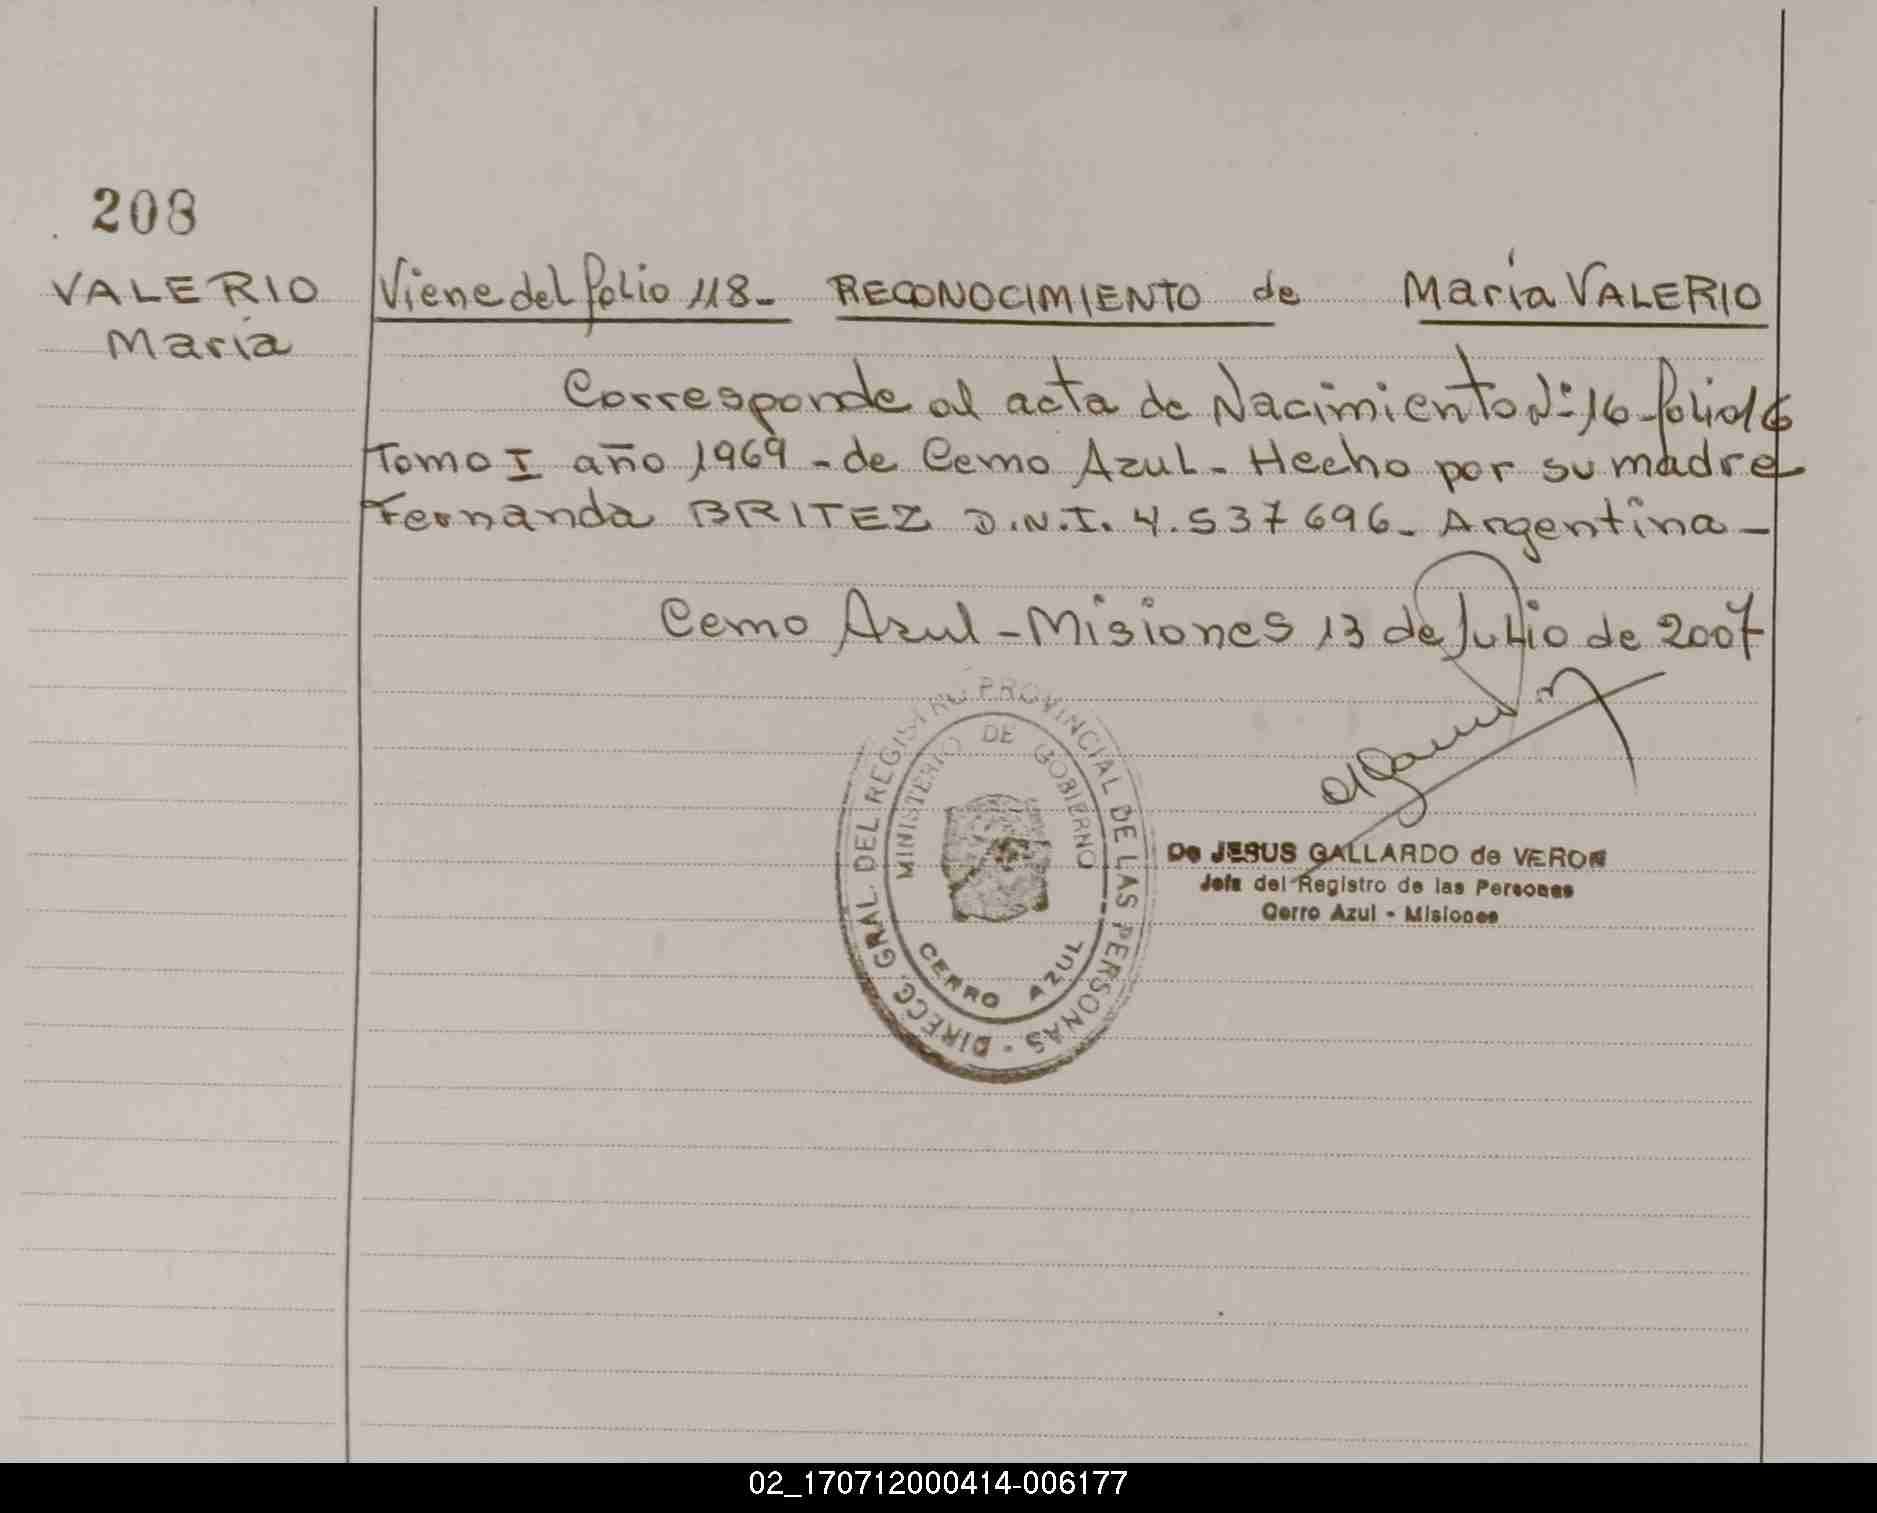 208
VALERIO
María
Viene del folio 118- RECONOCIMIENTO de María VALERIO
Corresponde al acta de Nacimiento Nº 16 folio 16
Tomo I año 1969 - de Cerro Azul - Hecho por su madre
Fernanda BRITEZ D.N.I. 4.537696- Argentina-
Cerro Azul - Misiones 13 de Julio de 2007
DIRECC. GRAL. DEL REGISTRO PROVINCIAL DE LAS PERSONAS -
MINISTERIO DE GOBIERNO
CERRO AZUL
De JESUS GALLARDO de VERON
Jefa del Registro de las Personas
Cerro Azul - Misiones
02_170712000414-006177